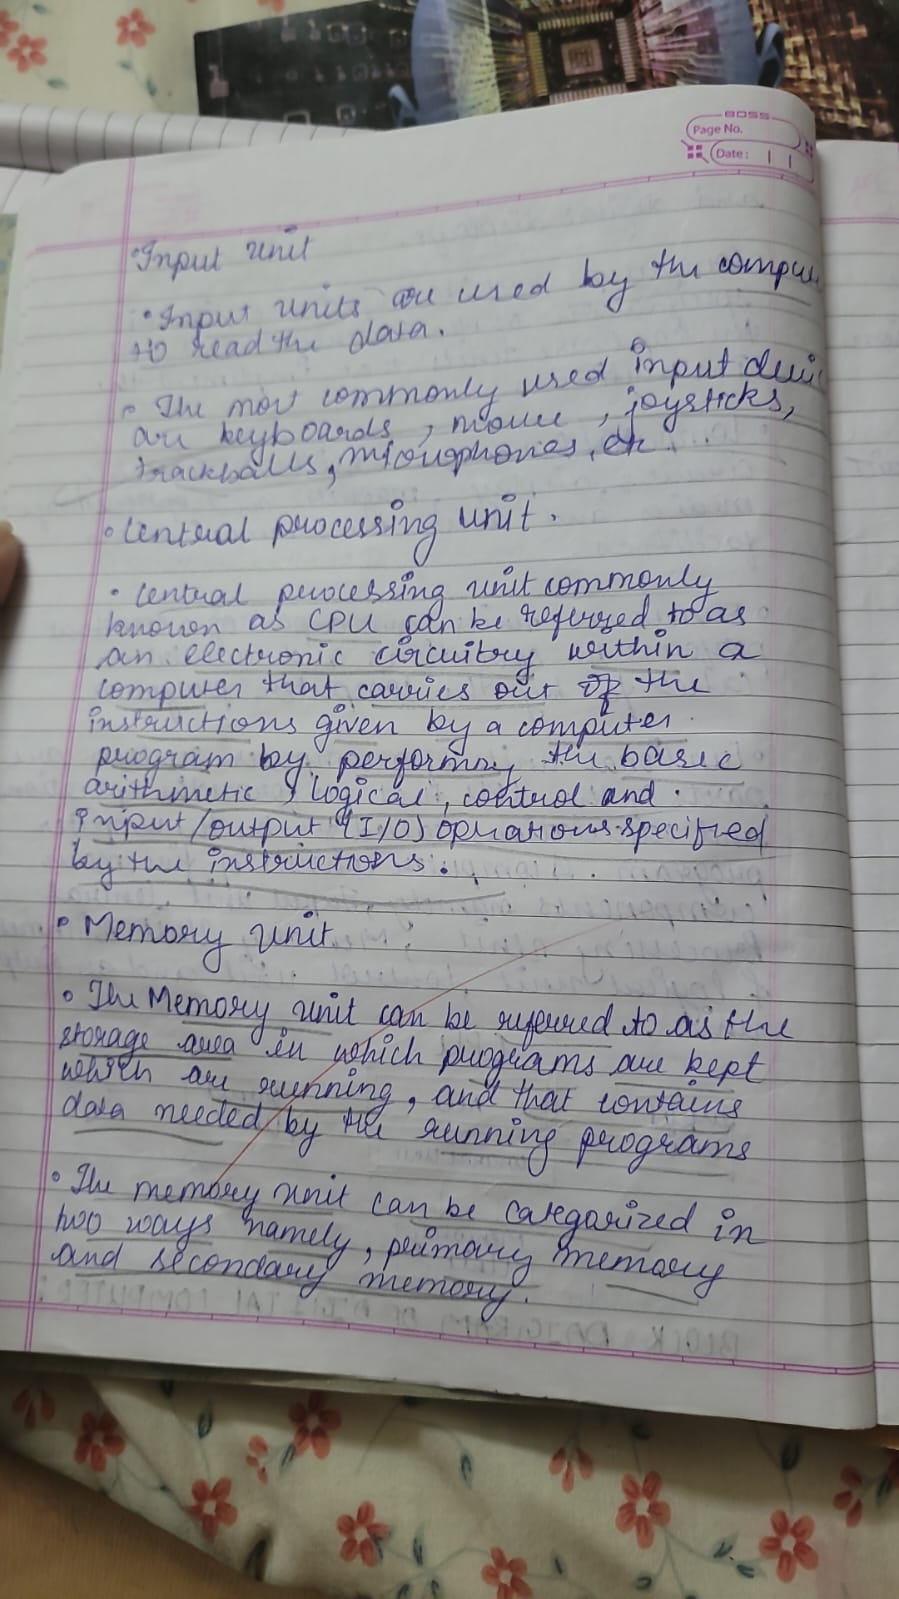 BOSS
Page No.
Date:
• Input unit
• Input units are used by the compu
to read the data.
• The most commonly used input devi
are keyboards, mouse, joysticks,
trackballs, microphones, etc.
• Central processing unit.
• Central processing unit commonly
known as CPU can be referred to as
an electronic circuitry within a
computer that carries out of the
instructions given by a computer
program by performing the basic
arithmetic, logical, control and
input/output (I/O) operations specified
by the instructions.
• Memory unit
• The Memory unit can be referred to as the
storage area in which programs are kept
which are running, and that contains
data needed by the running programs
• The memory unit can be categorized in
two ways namely, primary memory
and secondary memory.